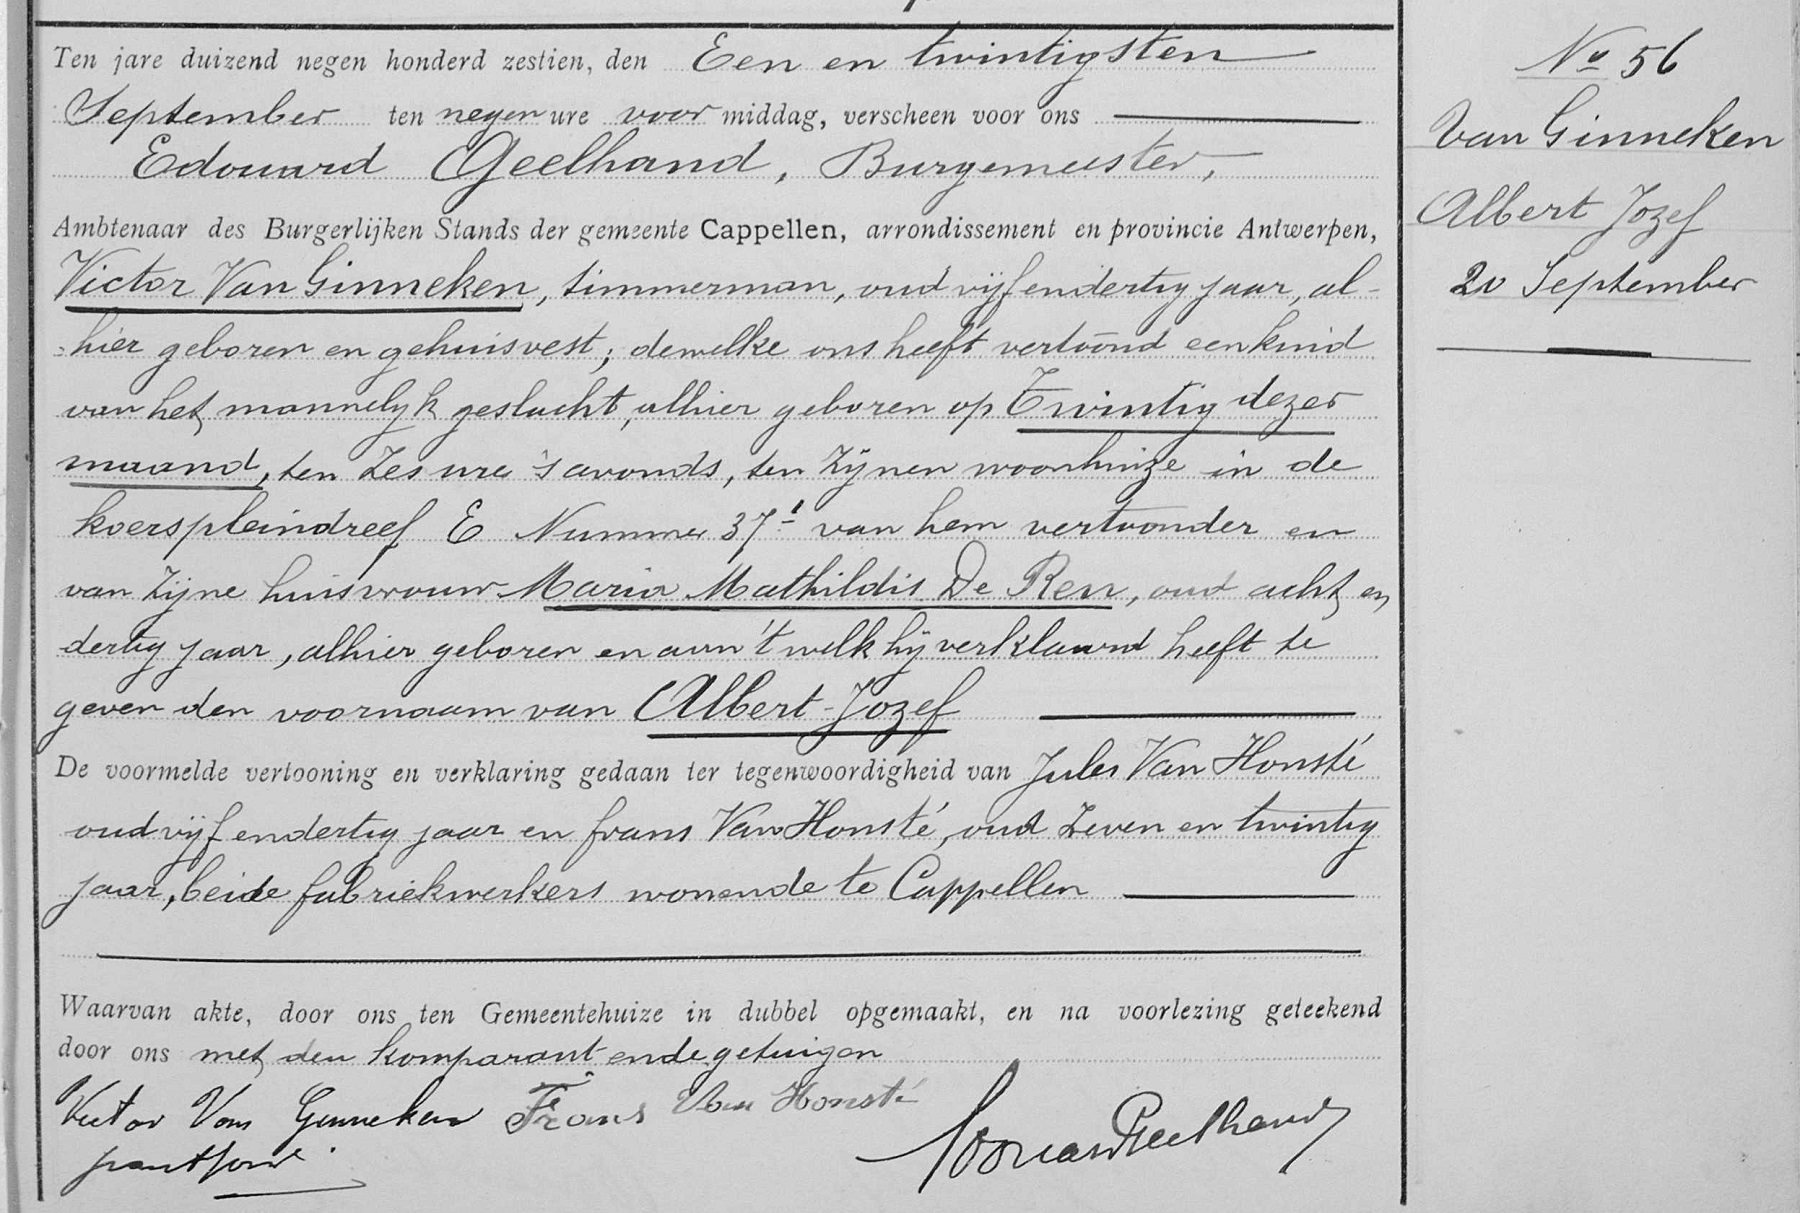 Ten jare duizend negen honderd zestien, den Een en twintigsten
September ten negen ure voor middag, verscheen voor ons
Edouard Geelhand, Burgemeester,
Ambtenaar des Burgerlijken Stands der gemeente Cappellen, arrondissement en provincie Antwerpen,
Victor Van Ginneken, timmerman, oud vijfendertig jaar, al-
hier geboren en gehuisvest; dewelke ons heeft vertoond een kind
van het mannelyk geslacht, alhier geboren op Twintig dezer
maand, ten Zes ure 's avonds, ten Zijnen woonhuize in de
koerspleindreef E Nummer 37¹ van hem vertooner en
van Zijne huisvrouw Maria Mathildis De Ren, oud acht en
dertig jaar, alhier geboren en aan 't welk hij verklaard heeft te
geven den voornaam van Albert-Jozef
De voormelde vertooning en verklaring gedaan ter tegenwoordigheid van Jules Van Honsté
oud vijf endertig jaar en frans Van Honsté, oud Zeven en twintig
jaar, beide fabriekwerkers wonende te Cappellen
Waarvan akte, door ons ten Gemeentehuize in dubbel opgemaakt, en na voorlezing geteekend
door ons met den komparant ende getuigen
Victor Van Ginneken Frans Van Honsté
Edouard Geelhand
No 56
Van Ginneken
Albert Jozef
20 September